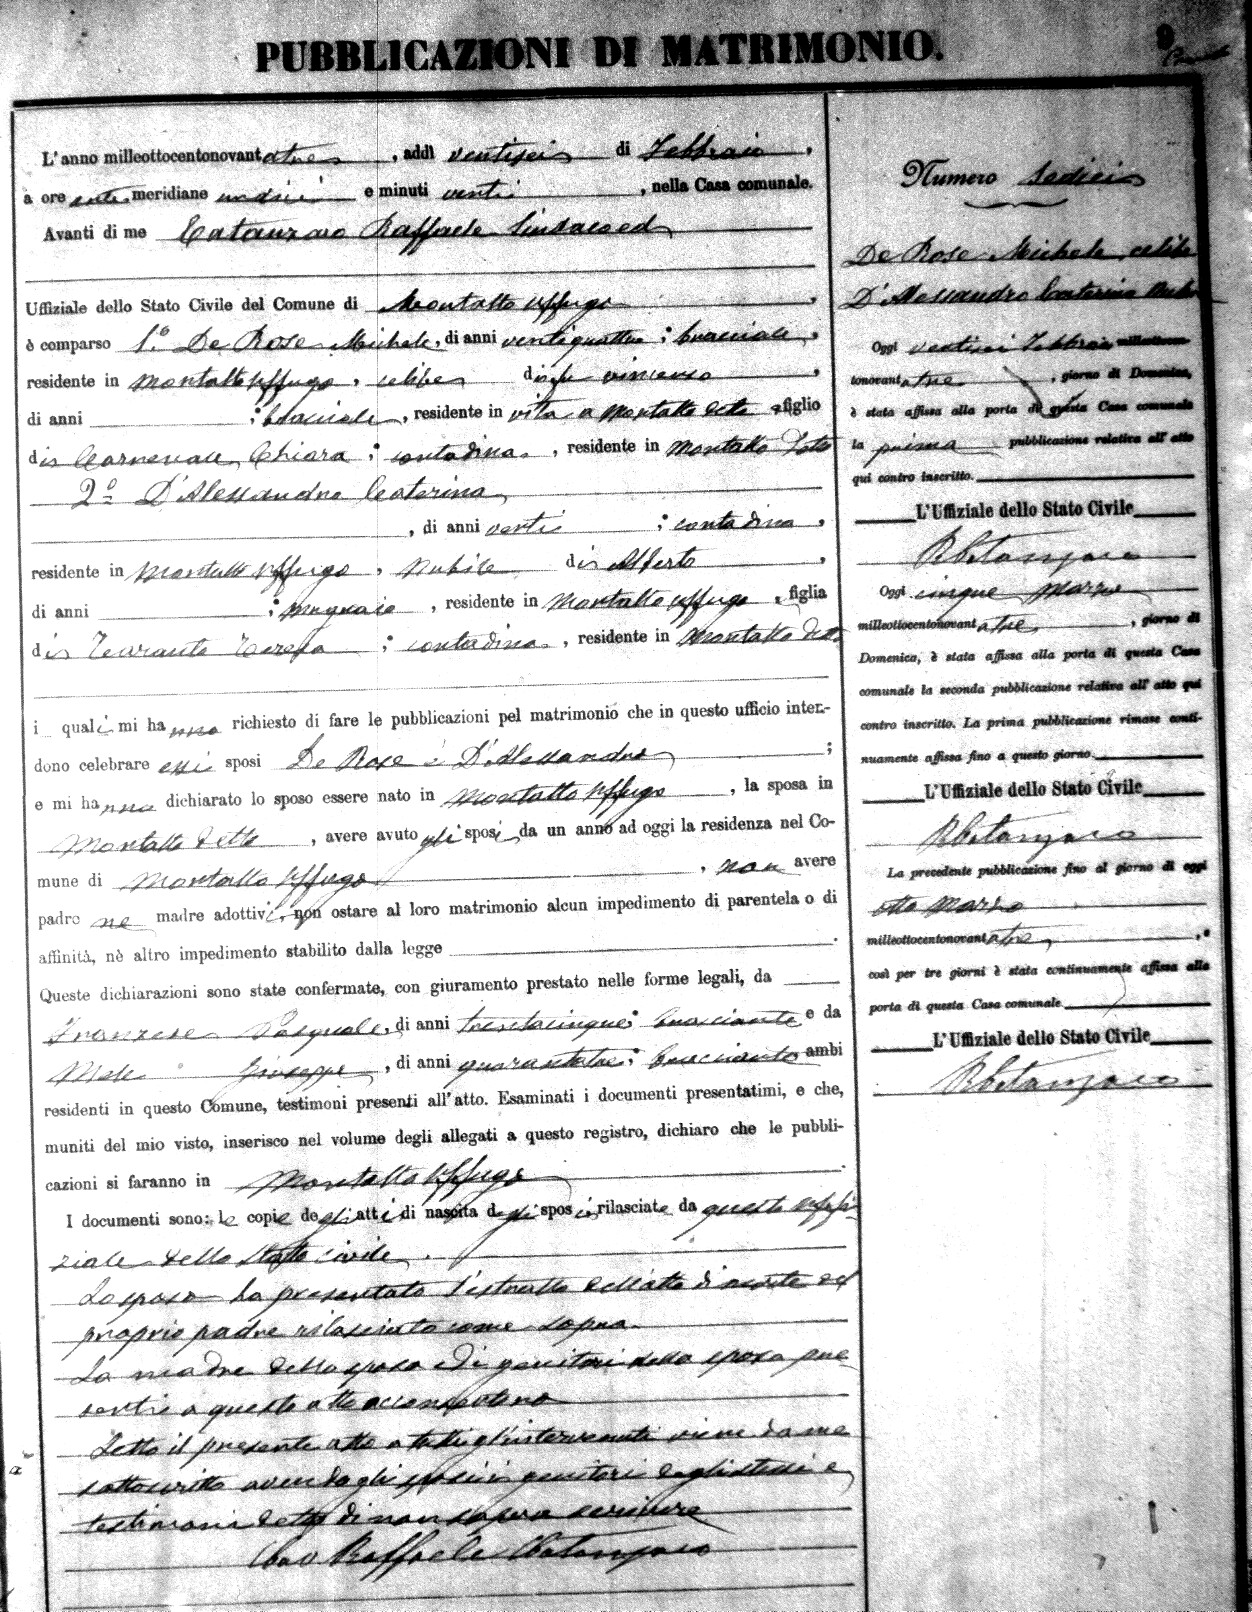 PUBBLICAZIONI DI MATRIMONIO.
9
L'anno milleottocentonovantatre, addì ventisei di Febbraio,
a ore ante meridiane undici e minuti venti, nella Casa comunale.
Avanti di me Catanzaro Raffaele Sindaco ed
Uffiziale dello Stato Civile del Comune di Montalto Uffugo,
è comparso 1.º De Rose Michele, di anni ventiquattro; bracciale,
residente in Montalto Uffugo, celibe di fu Vincenzo,
di anni ; bracciale, residente in vita a Montalto detto, figlio
di Carnevale Chiara; contadina, residente in Montalto detto
2º D'Alessandro Caterina
, di anni venti; contadina,
residente in Montalto Uffugo, nubile di Alberto,
di anni ; mugnaio, residente in Montalto Uffugo, figlia
di Teresa; contadina, residente in Montalto detto
i quali mi hanno richiesto di fare le pubblicazioni pel matrimonio che in questo ufficio inten-
dono celebrare essi sposi De Rose e D'Alessandro;
e mi hanno dichiarato lo sposo essere nato in Montalto Uffugo, la sposa in
Montalto detto, avere avuto gli sposi da un anno ad oggi la residenza nel Co-
mune di Montalto Uffugo, non avere
padre ne madre adottivi, non ostare al loro matrimonio alcun impedimento di parentela o di
affinità, nè altro impedimento stabilito dalla legge.
Queste dichiarazioni sono state confermate, con giuramento prestato nelle forme legali, da
Franzese Pasquale, di anni trentacinque; bracciante e da
Mele Giuseppe, di anni quarantatre; bracciante ambi
residenti in questo Comune, testimoni presenti all'atto. Esaminati i documenti presentatimi, e che,
muniti del mio visto, inserisco nel volume degli allegati a questo registro, dichiaro che le pubbli-
cazioni si faranno in Montalto Uffugo.
I documenti sono: le copie degli atti di nascita degli sposi rilasciate da questo uffi-
ziale dello Stato Civile.
Lo sposo ha presentato l'estratto dell'atto di morte del
proprio padre rilasciato come sopra.
La madre dello sposo ed i genitori della sposa pre-
senti a questo atto acconsentono
Letto il presente atto a tutti gl'intervenuti viene da me
sottoscritto avendo gli sposi i genitori degli stessi e
testimoni detto di non sapere scrivere
Raffaele Catanzaro
Numero sedici
De Rose Michele, celibe
D'Alessandro Caterina nubile
Oggi ventisei Febbraio milleottocen-
tonovantatre, giorno di Domenica,
è stata affissa alla porta di questa Casa comunale
la prima pubblicazione relativa all'atto
qui contro inscritto.
L'Uffiziale dello Stato Civile
R Catanzaro
Oggi cinque Marzo
milleottocentonovantatre, giorno di
Domenica, è stata affissa alla porta di questa Casa
comunale la seconda pubblicazione relativa all'atto qui
contro inscritto. La prima pubblicazione rimase conti-
nuamente affissa fino a questo giorno.
L'Uffiziale dello Stato Civile
R Catanzaro
La precedente pubblicazione fino al giorno di oggi
otto Marzo
milleottocentonovantatre, e
così per tre giorni è stata continuamente affissa alla
porta di questa Casa comunale.
L'Uffiziale dello Stato Civile
R Catanzaro